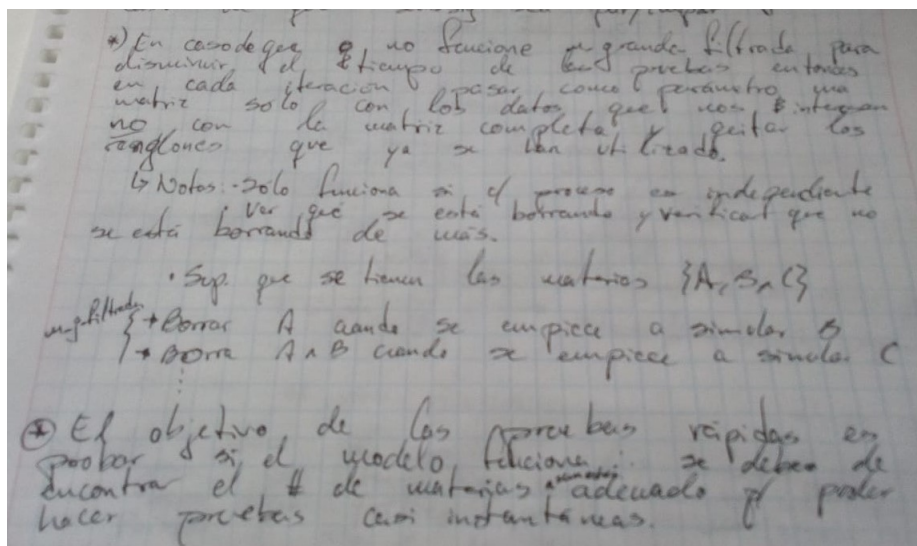 *) En caso de que no funcione m_grande_filtrada para
disminuir el tiempo de las pruebas entonces
en cada iteración pasar como parámetro una
matriz solo con los datos que nos interesan
no con la matriz completa y quitar los
renglones que ya se han utilizado.
↳ Notas: -Sólo funciona si el proceso es independiente
· Ver que se está borrando y verificar que no
se está borrando de más.
· Sup. que se tienen las materias {A, B, C}
m_g_filtrada { → Borrar A cuando se empiece a simular B
→ Borra A ∧ B cuando se empiece a simular C
⊛ El objetivo de las pruebas rápidas es
probar si el modelo funciona ∴ se deben de
encontrar el # de materias adecuado p/ poder
hacer pruebas casi instantáneas.